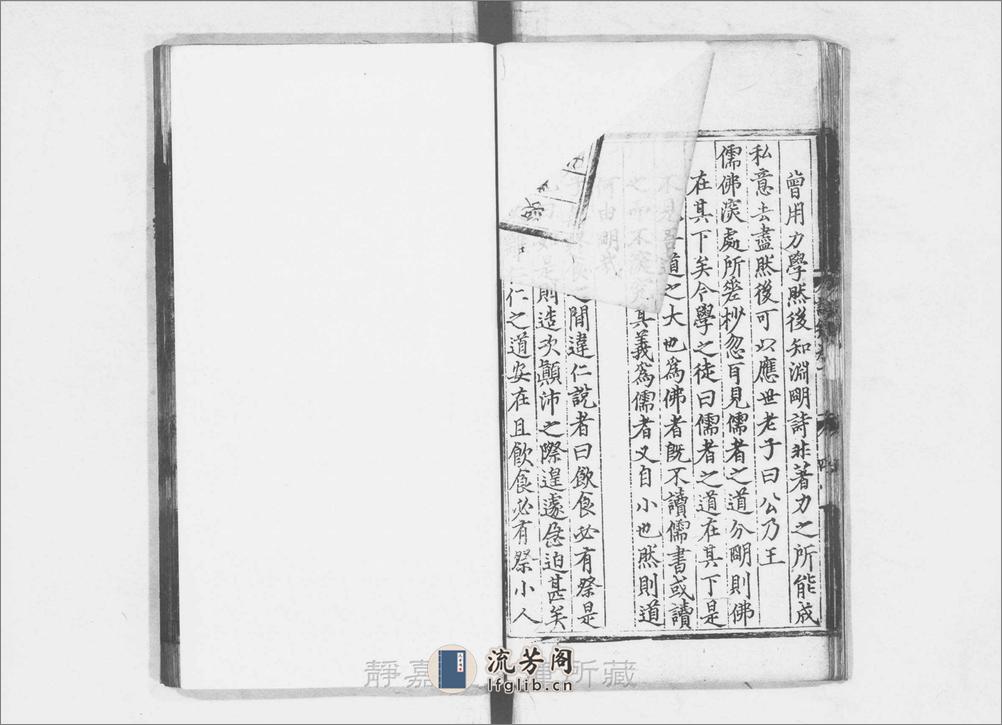 曾用力學然後知淵明詩非著力之所能成
私意去盡然後可以應世老子曰公乃王
儒佛深處所差杪忽耳見儒者之道分明則佛
在其下矣今學之徒曰儒者之道在其下是
不見吾道之大也為佛者既不讀儒書或讀
之而不深究其義為儒者又自小也然則道
何由明哉
之間違仁說者曰飲食必有祭是
則造次顛沛之際遑遽急迫甚矣
仁之道安在且飲食必有祭小人
靜嘉 所藏
流芳阁
lfglib.cn